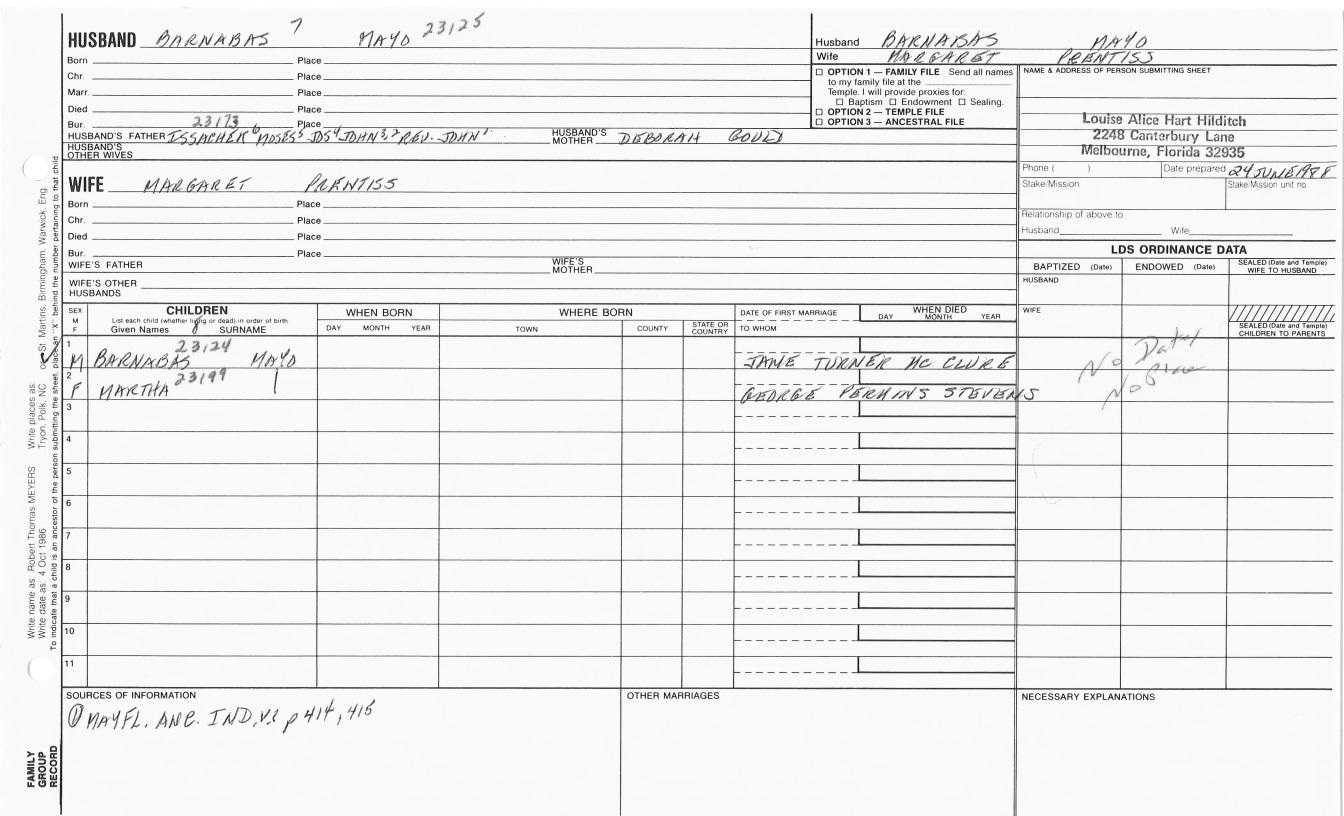 HUSBAND BARNABAS 7 MAYO 23125
Born Place
Chr. Place
Marr. Place
Died Place
Bur. 23173 Place
HUSBAND'S FATHER ISSACHER 6 MOSES 5 JDS 4 JOHN 3,2 REV. JOHN 1 HUSBAND'S MOTHER DEBORAH GOULD
HUSBAND'S OTHER WIVES
WIFE MARGARET PRENTISS
Born Place
Chr. Place
Died Place
Bur. Place
WIFE'S FATHER WIFE'S MOTHER
WIFE'S OTHER HUSBANDS
Husband BARNABAS MAYO
Wife MARGARET PRENTISS
☐ OPTION 1 — FAMILY FILE Send all names
to my family file at the
Temple. I will provide proxies for:
☐ Baptism ☐ Endowment ☐ Sealing.
☐ OPTION 2 — TEMPLE FILE
☐ OPTION 3 — ANCESTRAL FILE
NAME & ADDRESS OF PERSON SUBMITTING SHEET
Louise Alice Hart Hilditch
2248 Canterbury Lane
Melbourne, Florida 32935
Phone ( ) Date prepared 24 JUNE 1988
Stake/Mission Stake/Mission unit no.
Relationship of above to
Husband Wife
LDS ORDINANCE DATA
BAPTIZED (Date) ENDOWED (Date) SEALED (Date and Temple) WIFE TO HUSBAND
HUSBAND
WIFE
SEALED (Date and Temple) CHILDREN TO PARENTS
SEX M F
CHILDREN
List each child (whether living or dead) in order of birth
Given Names 8 SURNAME
WHEN BORN
DAY MONTH YEAR
WHERE BORN
TOWN COUNTY STATE OR COUNTRY
DATE OF FIRST MARRIAGE
TO WHOM
WHEN DIED
DAY MONTH YEAR
1 M BARNABAS 23124 MAYO JANE TURNER MC CLURE No Dates
2 F MARTHA 23199 GEORGE PERKINS STEVENS No Place
3
4
5
6
7
8
9
10
11
SOURCES OF INFORMATION
① MAYFL. ANC. IND, V.1 p 414, 415
OTHER MARRIAGES
NECESSARY EXPLANATIONS
Write name as: Robert Thomas MEYERS Write places as:
Write date as: 4 Oct 1986 Tryon, Polk, NC or St. Martins, Birmingham, Warwick, Eng.
To indicate that a child is an ancestor of the person submitting the sheet, place an "X" behind the number pertaining to that child
FAMILY
GROUP
RECORD